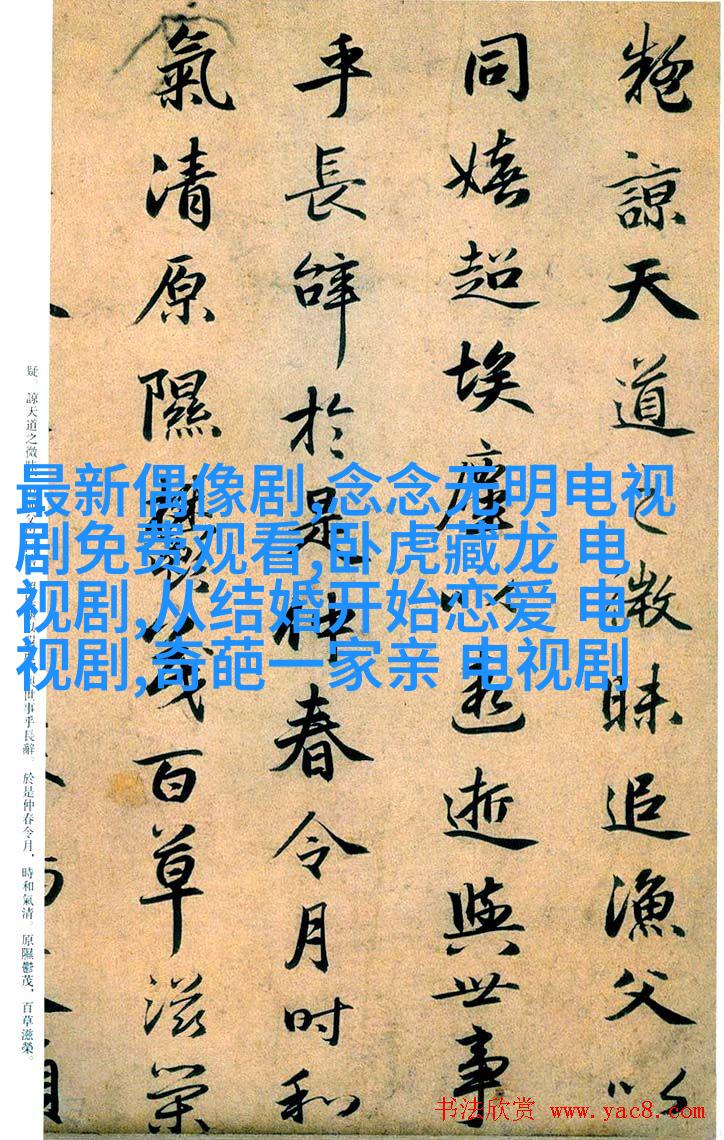 疑諒天道之微昧追漁父以
同嬉超埃塵以遐逝與世事
乎長辝於是仲春令月時和
氣清原隰鬱茂百草滋榮
疑。諒天道之微 世事乎長辭。於是仲春令月，時和氣清。原隰鬱茂，百草滋榮。
最新偶像剧,念念无明电视
剧免费观看,卧虎藏龙 电
视剧,从结婚开始恋爱 电
视剧,奇葩一家亲 电视剧
书法欣赏 www.yac8.com